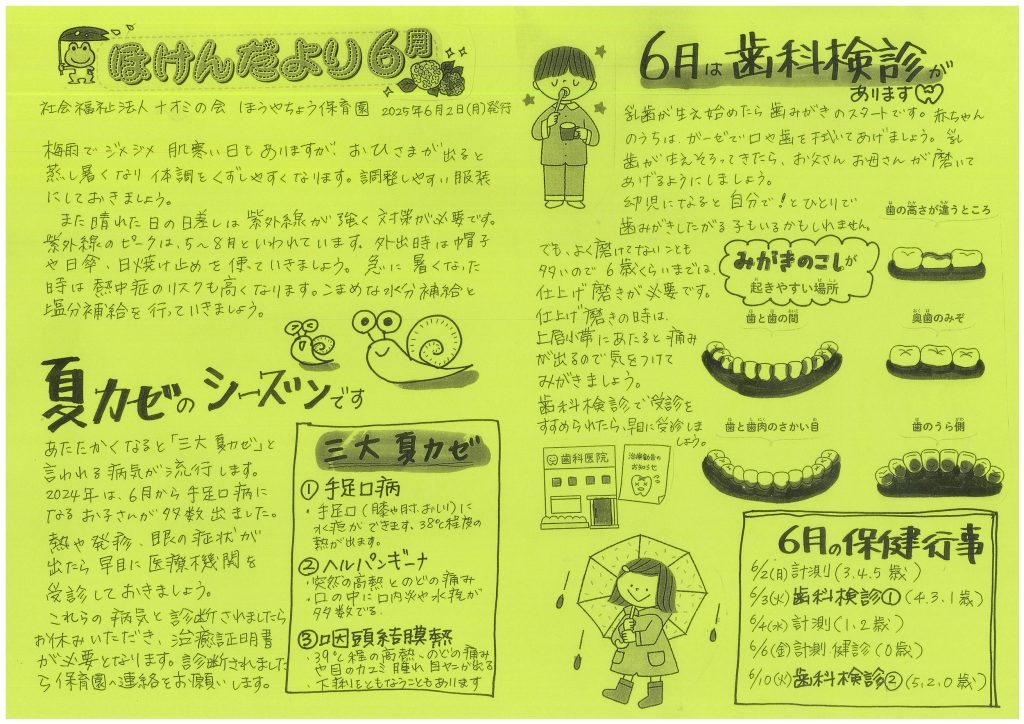 ほけんだより6月
社会福祉法人ナオミの会 ほうやちょう保育園 2025年6月2日(月)発行
梅雨でジメジメ 肌寒い日もありますが、おひさまが出ると
蒸し暑くなり 体調をくずしやすくなります。調整しやすい服装
にしておきましょう。
また晴れた日の日差しは紫外線が強く対策が必要です。
紫外線のピークは、5~8月といわれています。外出時は帽子
や日傘、日焼け止めを使っていきましょう。急に暑くなった
時は熱中症のリスクも高くなります。こまめな水分補給と
塩分補給を行っていきましょう。
夏カゼのシーズンです
あたたかくなると「三大夏カゼ」と
言われる病気が流行します。
2024年は、6月から手足口病に
なるお子さんが多数出ました。
熱や発疹、眼の症状が
出たら早目に医療機関を
受診しておきましょう。
これらの病気と診断されましたら
お休みいただき、治癒証明書
が必要となります。診断されました
ら保育園へ連絡をお願いします。
三大夏カゼ
① 手足口病
・手足口(膝や肘、おしり)に
水疱ができます、38℃程度の
熱が出ます。
② ヘルパンギーナ
・突然の高熱とのどの痛み
・口の中に口内炎や水疱が
多数でる。
③ 咽頭結膜熱
・39℃程の高熱、のどの痛み
や目のカユミ 腫れ、目ヤニが出る
・下痢をともなうこともあります
6月は歯科検診が
あります
乳歯が生え始めたら歯みがきのスタートです。赤ちゃん
のうちは、ガーゼで口や歯を拭いてあげましょう。乳
歯が生えそろってきたら、お父さんお母さんが磨いて
あげるようにしましょう。
幼児になると自分で!とひとりで
歯みがきしたがる子もいるかもしれません。
でも、よく磨けてないことも
多いので6歳くらいまでは、
仕上げ磨きが必要です。
仕上げ磨きの時は、
上唇小帯にあたると痛み
が出るので気をつけて
みがきましょう。
歯科検診で受診を
すすめられたら、早目に受診しま
しょう。
みがきのこしが
起きやすい場所
歯の高さが違うところ
歯と歯の間
奥歯のみぞ
歯と歯肉のさかい目
歯のうら側
歯科医院
治療勧告の
お知らせ
6月の保健行事
6/2(月)計測(3.4.5歳)
6/3(火)歯科検診①(4.3.1歳)
6/4(水)計測(1.2歳)
6/6(金)計測健診(0歳)
6/10(火)歯科検診②(5.2.0歳)